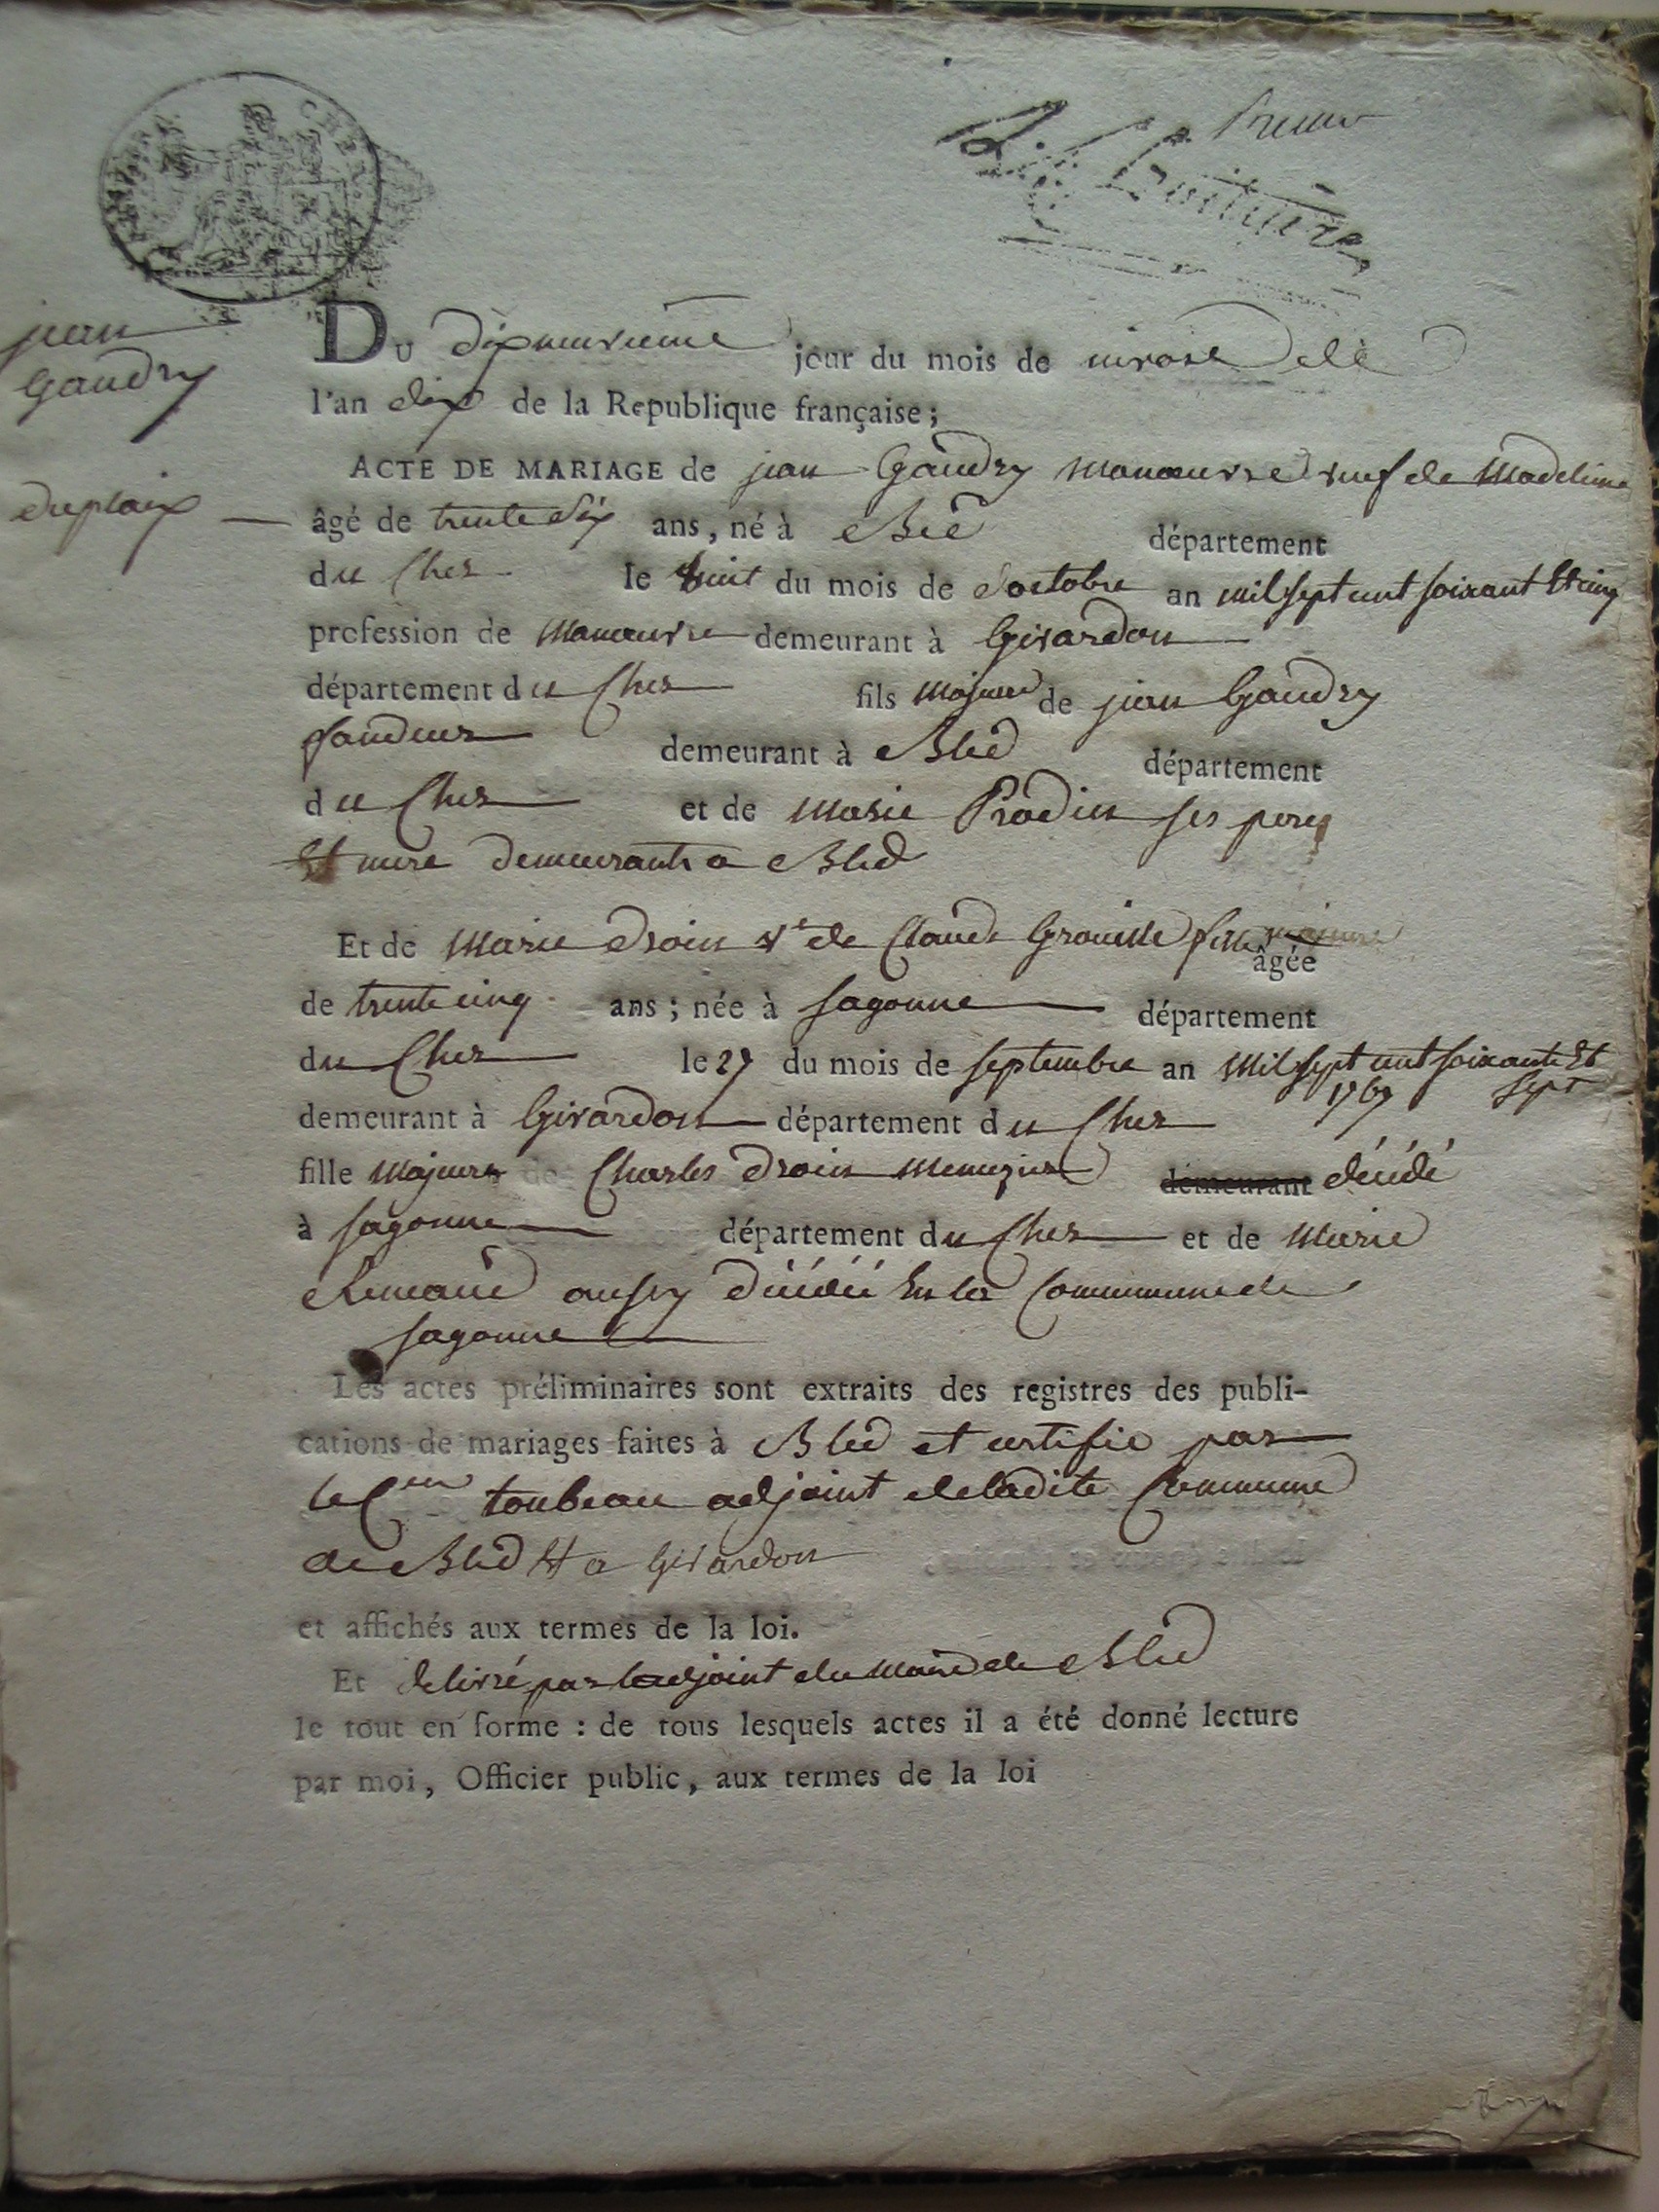 jean
Gaudry
DU dixneuvieme jour du mois de nivose de
l'an dix de la Republique française ;
ACTE DE MARIAGE de jean Gaudry manoeuvre veuf de Madelene
duplaix — âgé de trente six ans, né à Blé département
du Cher le huit du mois de d'octobre an mil sept cent soixant Et cinq
profession de manoeuvre demeurant à Givardon
département du Cher fils majeur de jean Gaudry
demeurant à Bled département
du Cher et de Marie Prodin ses peres
Et mere demeurants a Bled
Et de Marie droin Ve de Claude Grouille fille majeure âgée
de trente cinq ans ; née à Sagonne département
du Cher le 27 du mois de septembre an mil sept cent soixante Et
1767 sept
demeurant à Givardon département du Cher
fille majeure de Charles droin menuzier demeurant décédé
à Sagonne département du Cher et de Marie
Renaud aussy décédée En la Commune de
Sagonne
Les actes préliminaires sont extraits des registres des publi-
cations de mariages faites à Bled et certifié par
le Cen toubeau adjoint de ladite Commune
de Bled Et a Givardon
et affichés aux termes de la loi.
Et delivré par ladjoint du Maire de Bled
le tout en forme : de tous lesquels actes il a été donné lecture
par moi, Officier public, aux termes de la loi